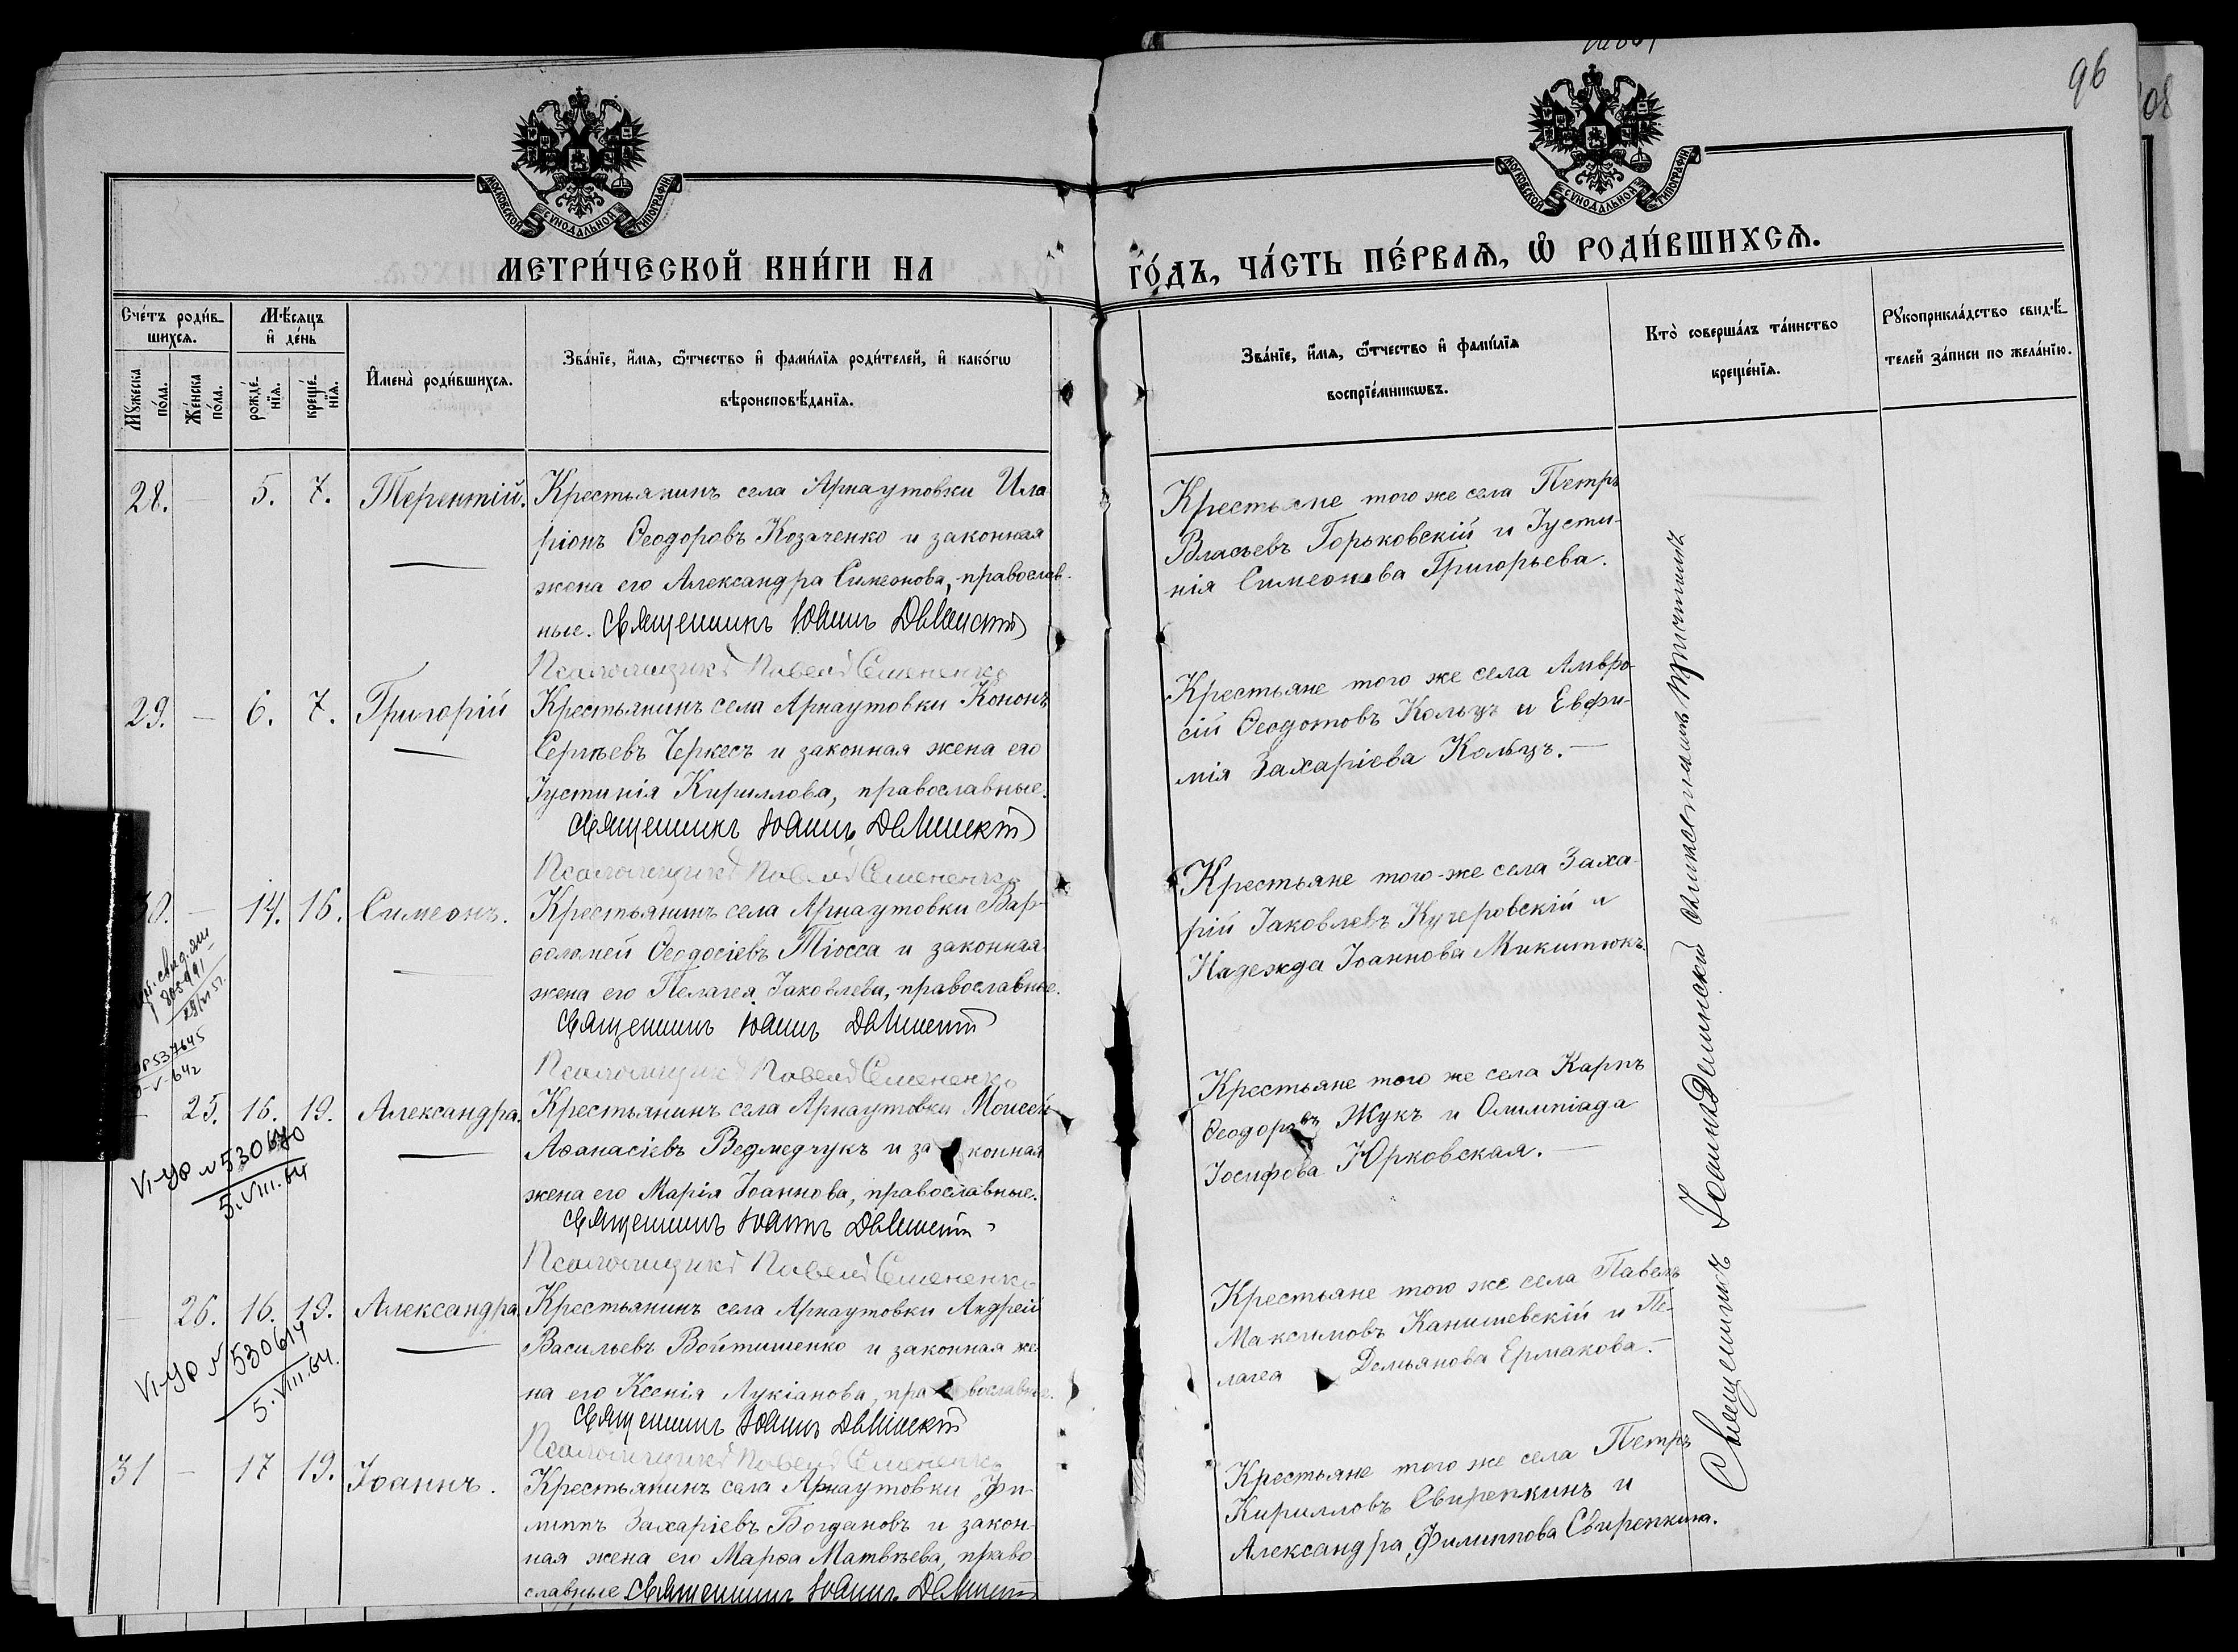 96
108
МОСКОВСКОЙ СѴНОДАЛЬНОЙ ТИПОГРАФІИ
МОСКОВСКОЙ СѴНОДАЛЬНОЙ ТИПОГРАФІИ
МЕТРИ́ЧЕСКОЙ КНИ́ГИ НА
ГО́ДЪ, ЧА́СТЬ ПЕ́РВАѦ, Ѡ҆ РОДИ́ВШИХСѦ.
Сче́тъ роди́в-
шихсѧ.
Мѣ́сѧцъ
и҆ де́нь
Мꙋ́жеска
по́ла.
Же́нска
по́ла.
рожде́-
нїѧ.
креще́-
нїѧ.
И҆мена̀ роди́вшихсѧ.
Зва́нїе, и҆́мѧ, ѻ҆́тчество и҆ фами́лїѧ роди́телей, и҆ како́гѡ
вѣроисповѣ́данїѧ.
Зва́нїе, и҆́мѧ, ѻ҆́тчество и҆ фами́лїѧ
воспрїе́мникѡвъ.
Кто̀ соверша́лъ та́инство
креще́нїѧ.
Рꙋкоприкла́дство свидѣ́-
телей за́писи по жела́нїю.
28. — 5. 7. Терентій. Крестьянинъ села Арнаутовки Ила-
ріонъ Ѳеодоровъ Козаченко и законная
жена его Александра Симеонова, православ-
ные. Священникъ Іоаннъ Делинскій
Псаломщикъ Павелъ Семененко
Крестьяне того же села Петръ
Власьевъ Горьковскій и Іусти-
нія Симеонова Григорьева.
29. — 6. 7. Григорій Крестьянинъ села Арнаутовки Кононъ
Сергѣевъ Черкесъ и законная жена его
Іустинія Кириллова, православные.
Священникъ Іоаннъ Делинскій
Псаломщикъ Павелъ Семененко
Крестьяне того же села Амвро-
сій Ѳеодотовъ Кольцъ и Евфи-
мія Захаріева Кольцъ. —
30. — 14. 16. Симеонъ. Крестьянинъ села Арнаутовки Вар-
ѳоломей Ѳеодосіевъ Тіосса и законная
жена его Пелагея Іаковлева, православные.
Священникъ Іоаннъ Делинскій
Псаломщикъ Павелъ Семененко
Крестьяне того-же села Заха-
рій Іаковлевъ Кучеровскій и
Надежда Іоаннова Микитюкъ.
537645
— 25. 16. 19. Александра. Крестьянинъ села Арнаутовки Моисей
Аѳанасіевъ Ведмедчукъ и законная
жена его Марія Іоаннова, православные.
Священникъ Іоаннъ Делинскій
Псаломщикъ Павелъ Семененко
VI-УФ №
5.VIII.64
Крестьяне того же села Карпъ
Ѳеодоровъ Жукъ и Олимпіада
Іосифова Юрковская. —
— 26. 16. 19. Александра Крестьянинъ села Арнаутовки Андрей
Васильевъ Войтишенко и законная же-
на его Ксенія Лукіанова, православные.
Священникъ Іоаннъ Делинскій
Псаломщикъ Павелъ Семененко
VI-УФ № 530614
5.VIII.64.
Крестьяне того же села Павелъ
Максимовъ Канишевскій и Пе-
лагея Демьянова Ермакова. —
31 — 17 19. Іоаннъ. Крестьянинъ села Арнаутовки Фи-
липпъ Захаріевъ Богдановъ и закон-
ная жена его Марѳа Матвѣева, право-
славные Священникъ Іоаннъ Делинскій
Крестьяне того же села Петръ
Кирилловъ Свирепкинъ и
Александра Филиппова Свирепкина.
Священникъ Іоаннъ Делинскій